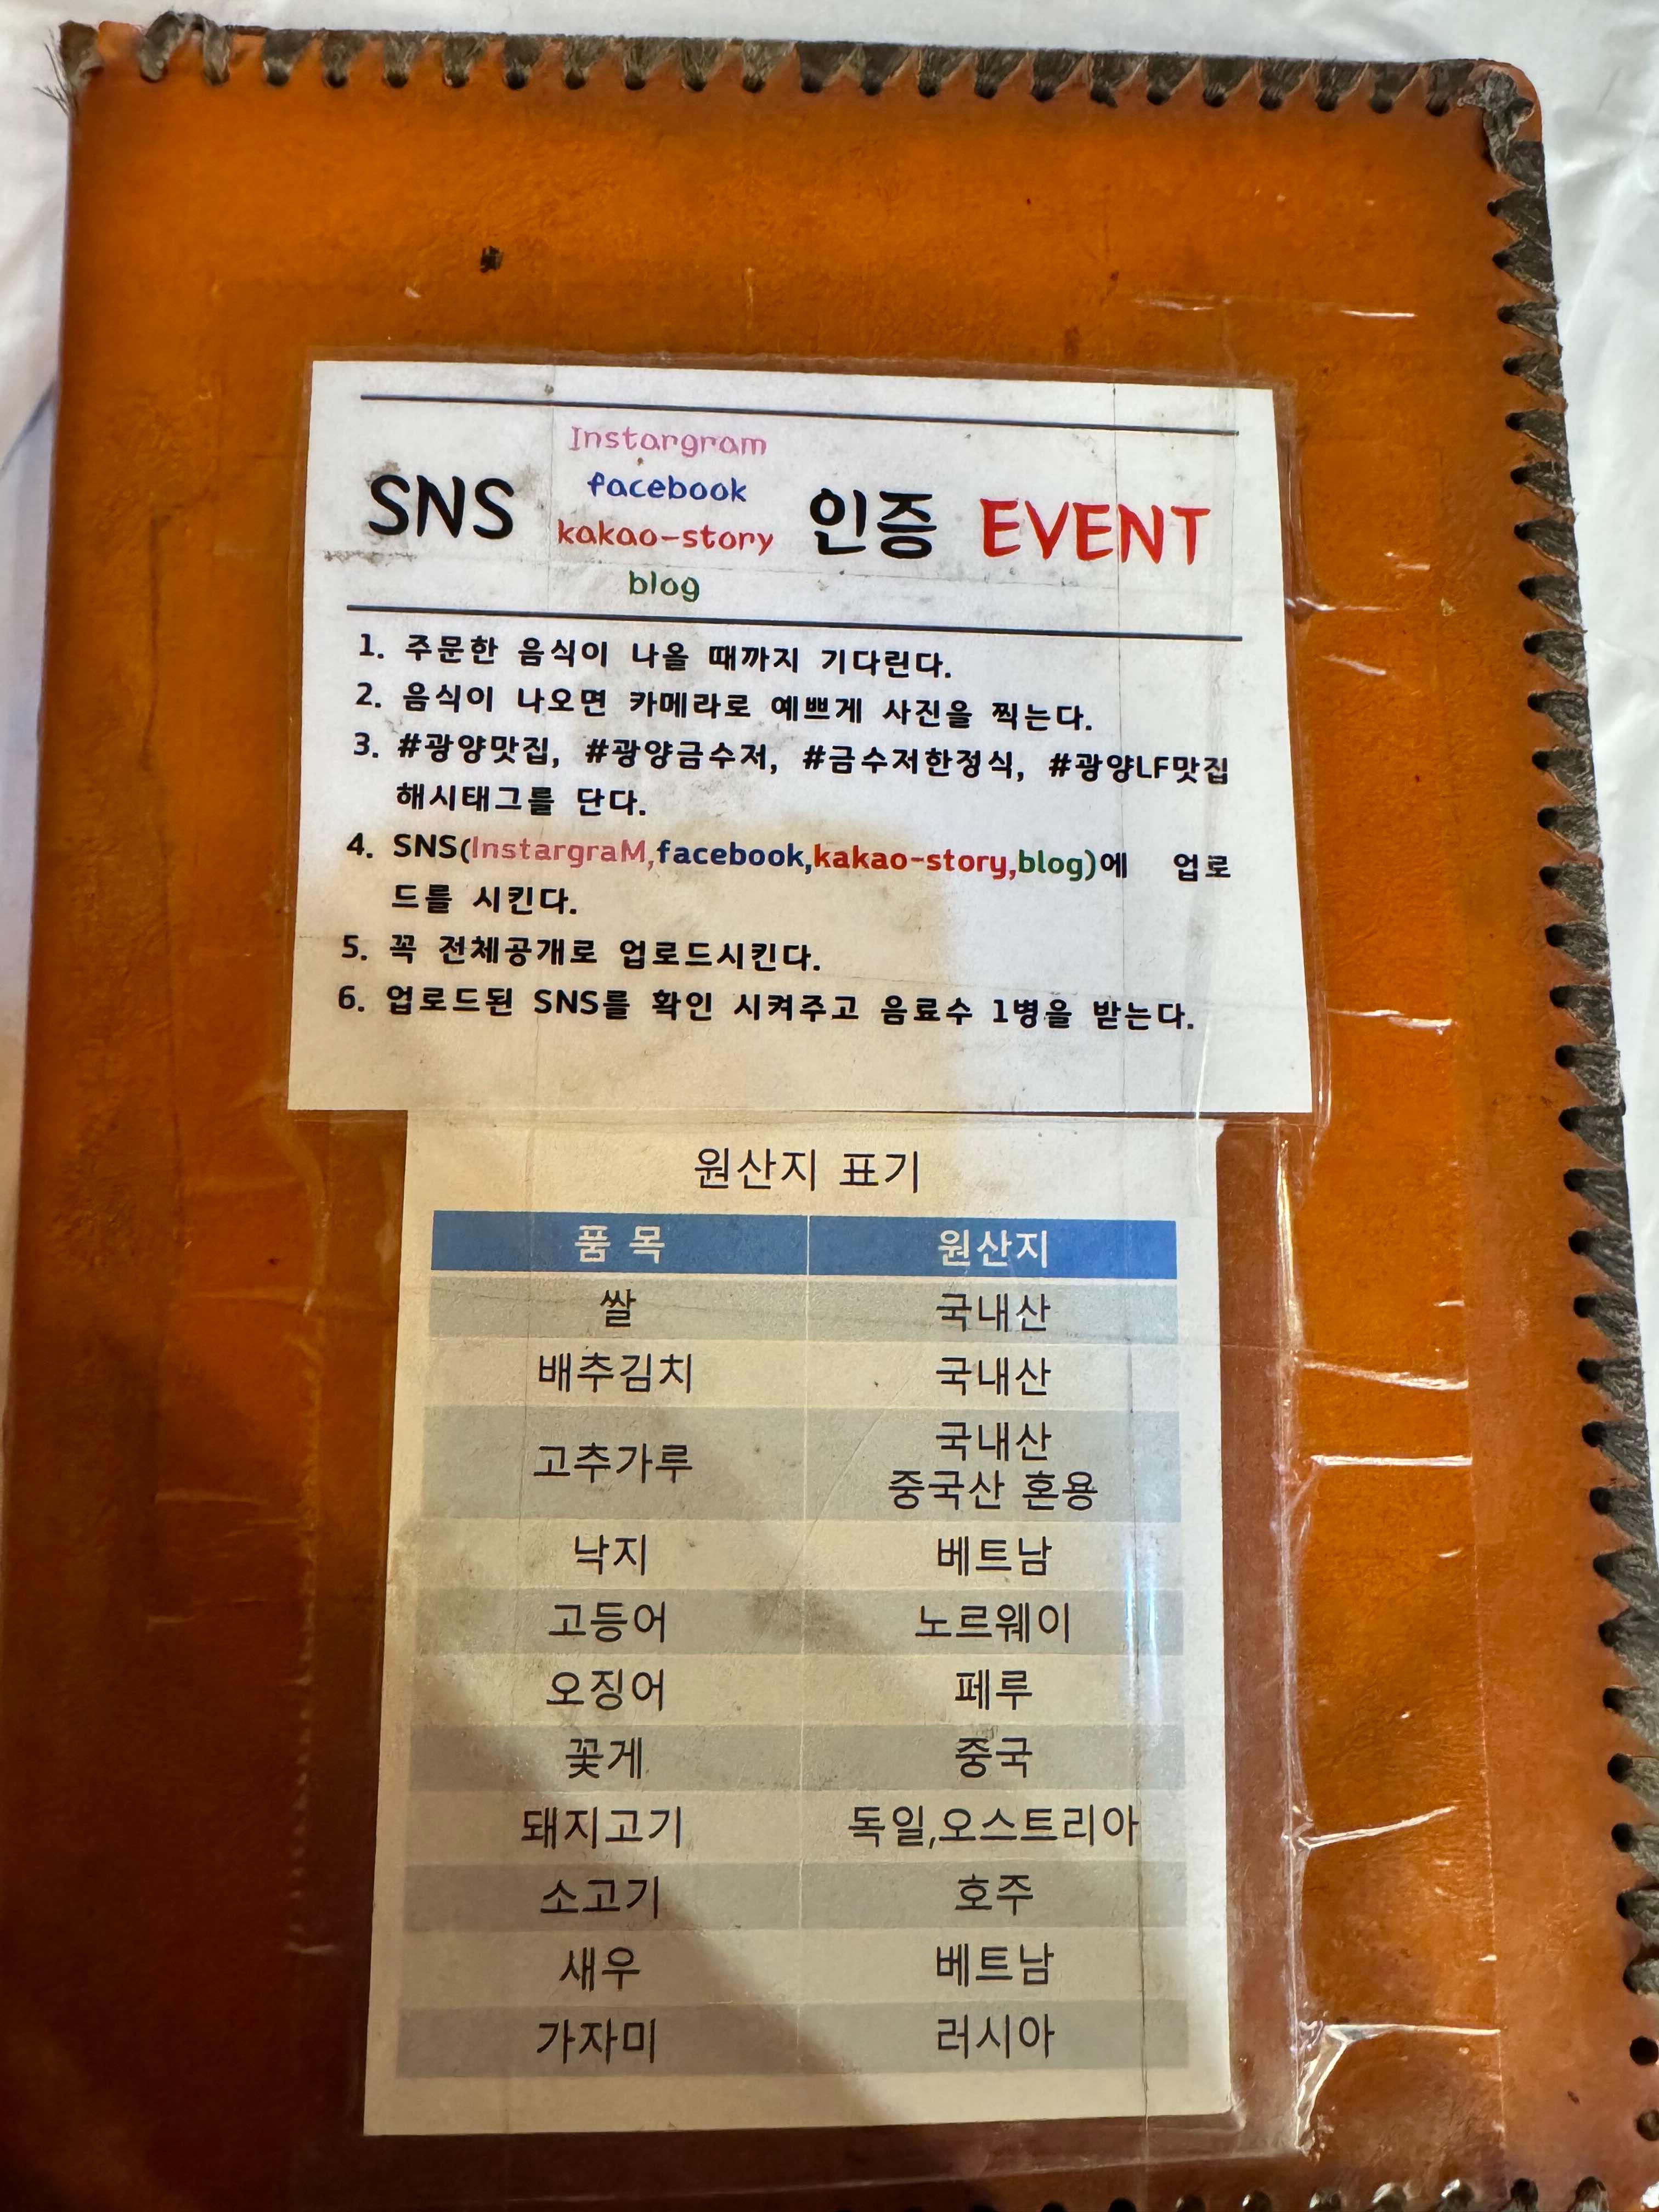 SNS Instargram facebook kakao-story blog 인증 EVENT
1. 주문한 음식이 나올 때까지 기다린다.
2. 음식이 나오면 카메라로 예쁘게 사진을 찍는다.
3. #광양맛집, #광양금수저, #금수저한정식, #광양LF맛집
해시태그를 단다.
4. SNS(InstargraM,facebook,kakao-story,blog)에 업로
드를 시킨다.
5. 꼭 전체공개로 업로드시킨다.
6. 업로드된 SNS를 확인 시켜주고 음료수 1병을 받는다.
원산지 표기
품 목 원산지
쌀 국내산
배추김치 국내산
고추가루 국내산
중국산 혼용
낙지 베트남
고등어 노르웨이
오징어 페루
꽃게 중국
돼지고기 독일,오스트리아
소고기 호주
새우 베트남
가자미 러시아